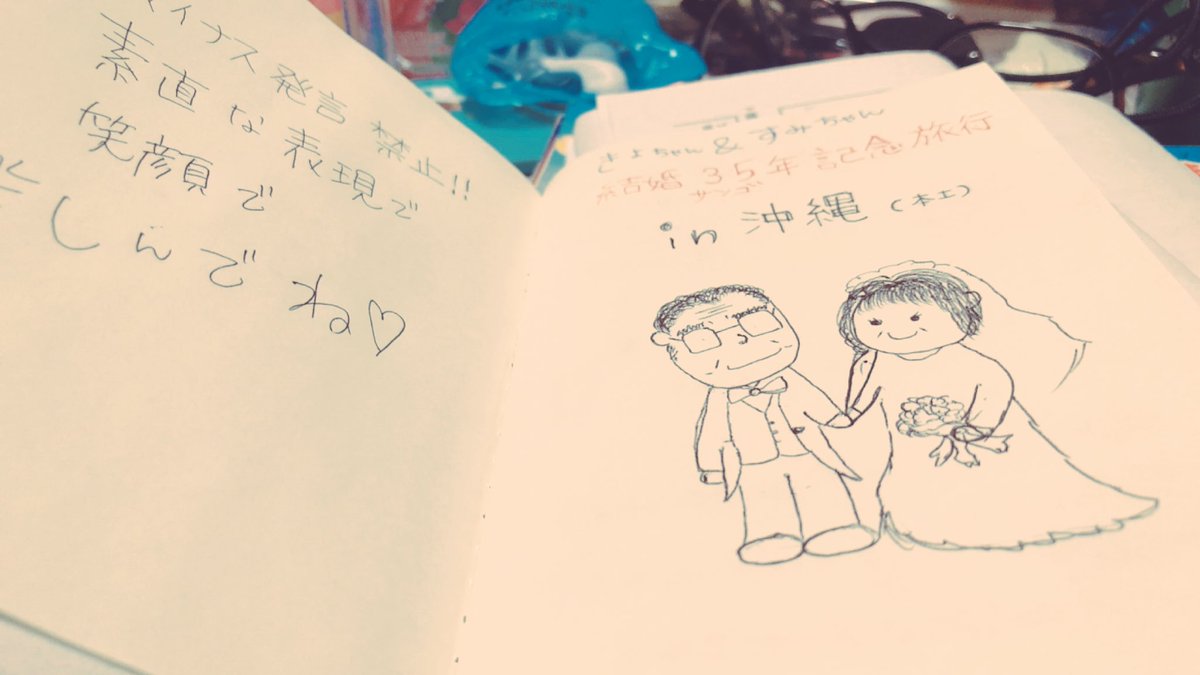 マイナス発言禁止!!
素直な表現で
笑顔で
楽しんでね♡
きよちゃん&すみちゃん
結婚35年記念旅行
サンゴ
in 沖縄